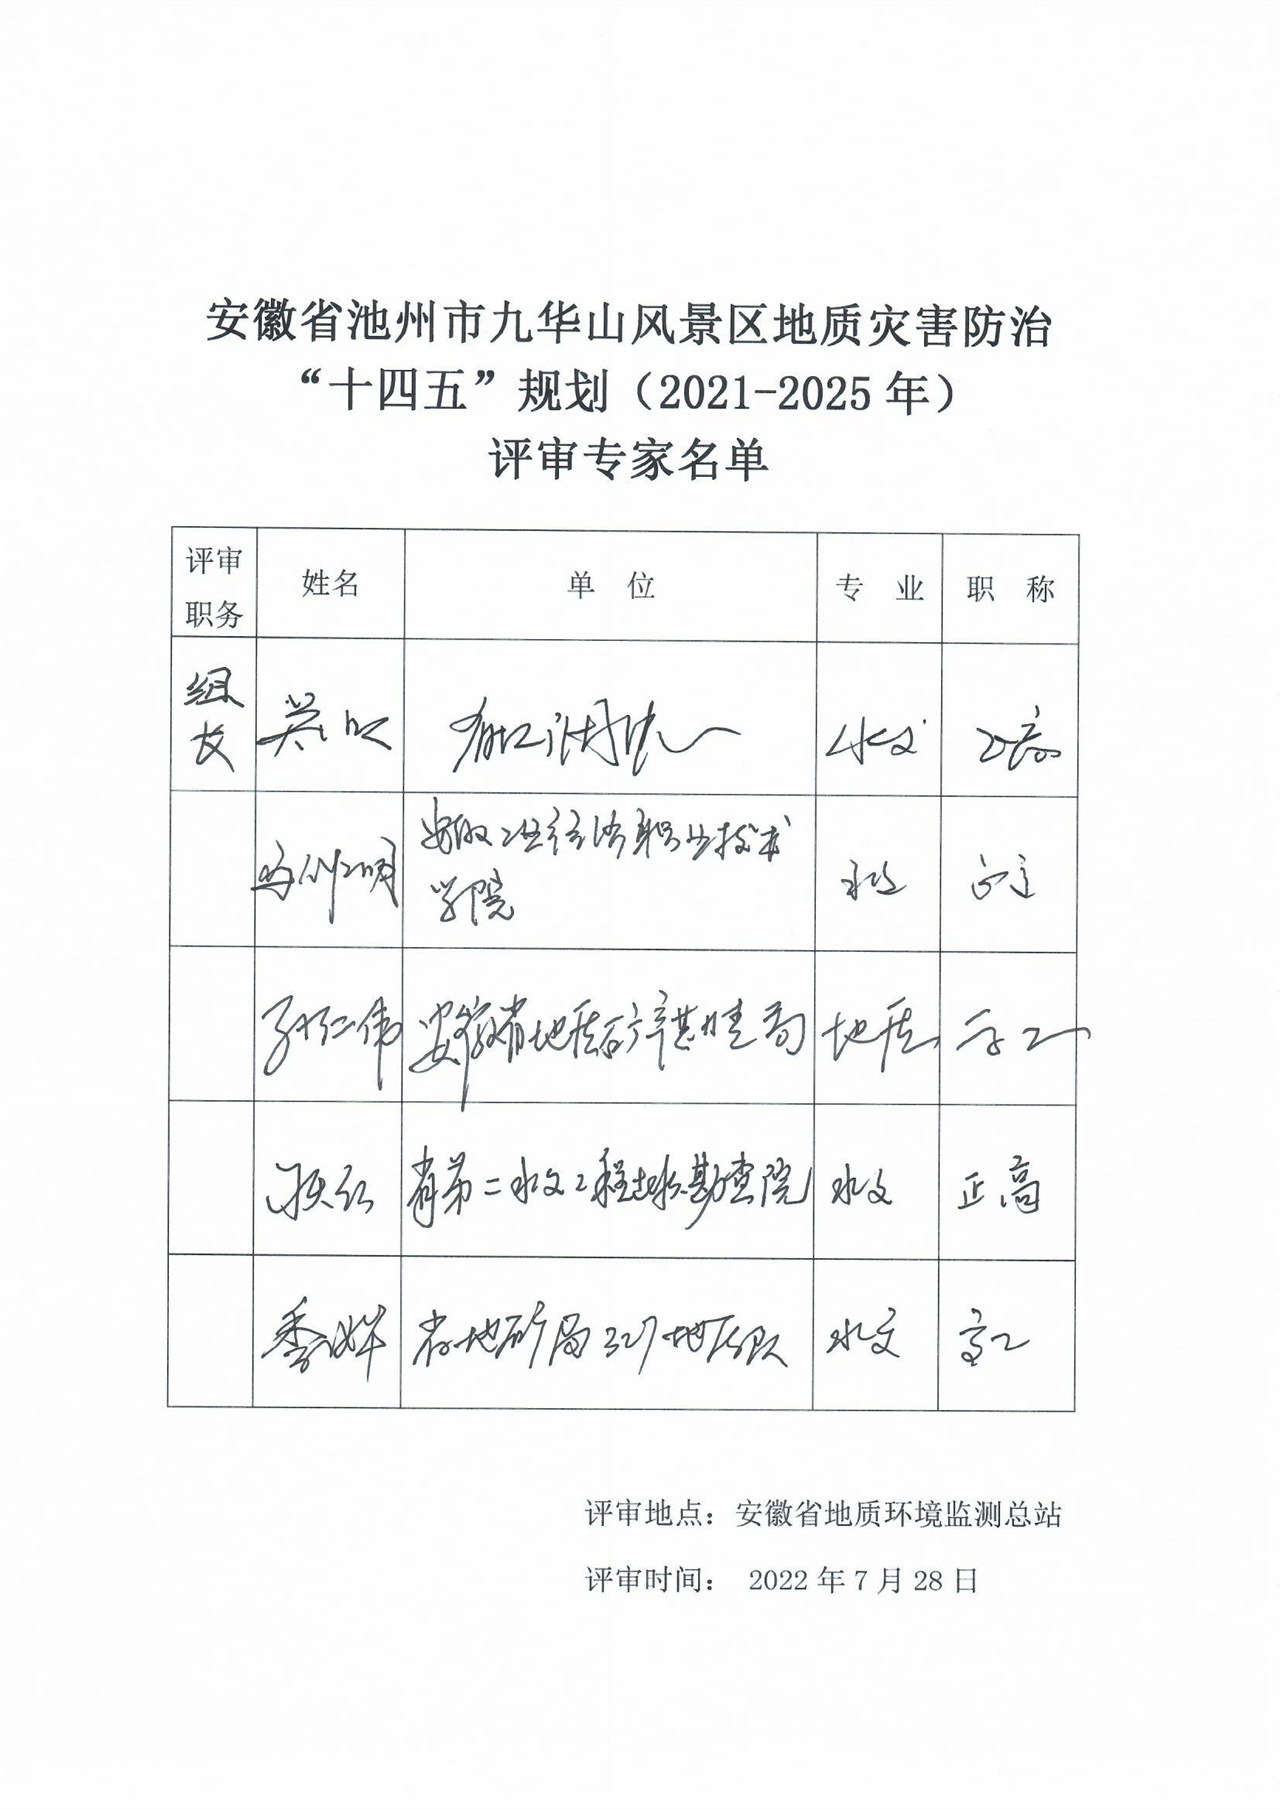 安徽省池州市九华山风景区地质灾害防治
“十四五”规划（2021-2025年）
评审专家名单
评审职务 姓名 单 位 专 业 职 称
组长 水文
学院 水文
孙仁伟 安徽省地质矿产勘查局 地质
省第二水文工程地质勘查院 水文 正高
省地矿局327地质队 水文 高工
评审地点：安徽省地质环境监测总站
评审时间： 2022年7月28日